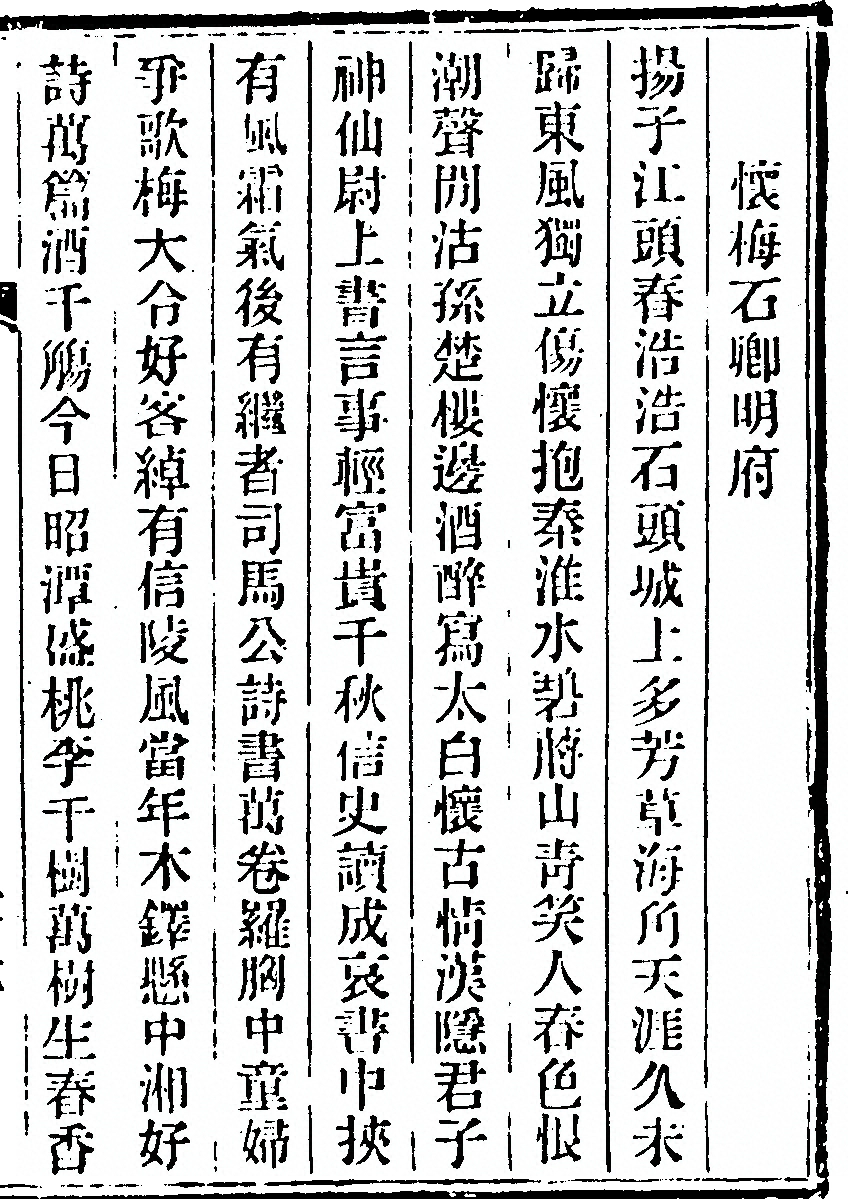 懷梅石卿明府
揚子江頭春浩浩石頭城上多芳草海角天涯久未
歸東風獨立傷懷抱秦淮水碧蔣山青笑人春色恨
潮聲閒沽孫楚樓邊酒醉寫太白懷古情漢隱君子
神仙尉上書言事輕富貴千秋信史讀成哀書中挾
有風霜氣後有繼者司馬公詩書萬卷羅胸中童婦
爭歌梅大令好客綽有信陵風當年木鐸懸中湘好
詩萬篇酒千觴今日昭潭盛桃李千樹萬樹生春香